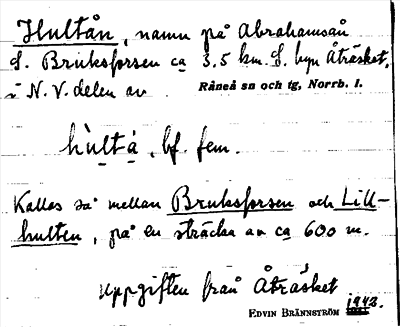 Hultån, namn på Abrahamsån
f. Bruksforsen ca 3.5 km. f. byn Åträsket,
i N.V. delen av Råneå sn och tg, Norrb. l.
hùltá, bf. fem.
Kallas så mellan Bruksforsen och Lill-
hulten, på en sträcka av ca 600 m.
Uppgiften från Åträsket
Edvin Brännström 1942.